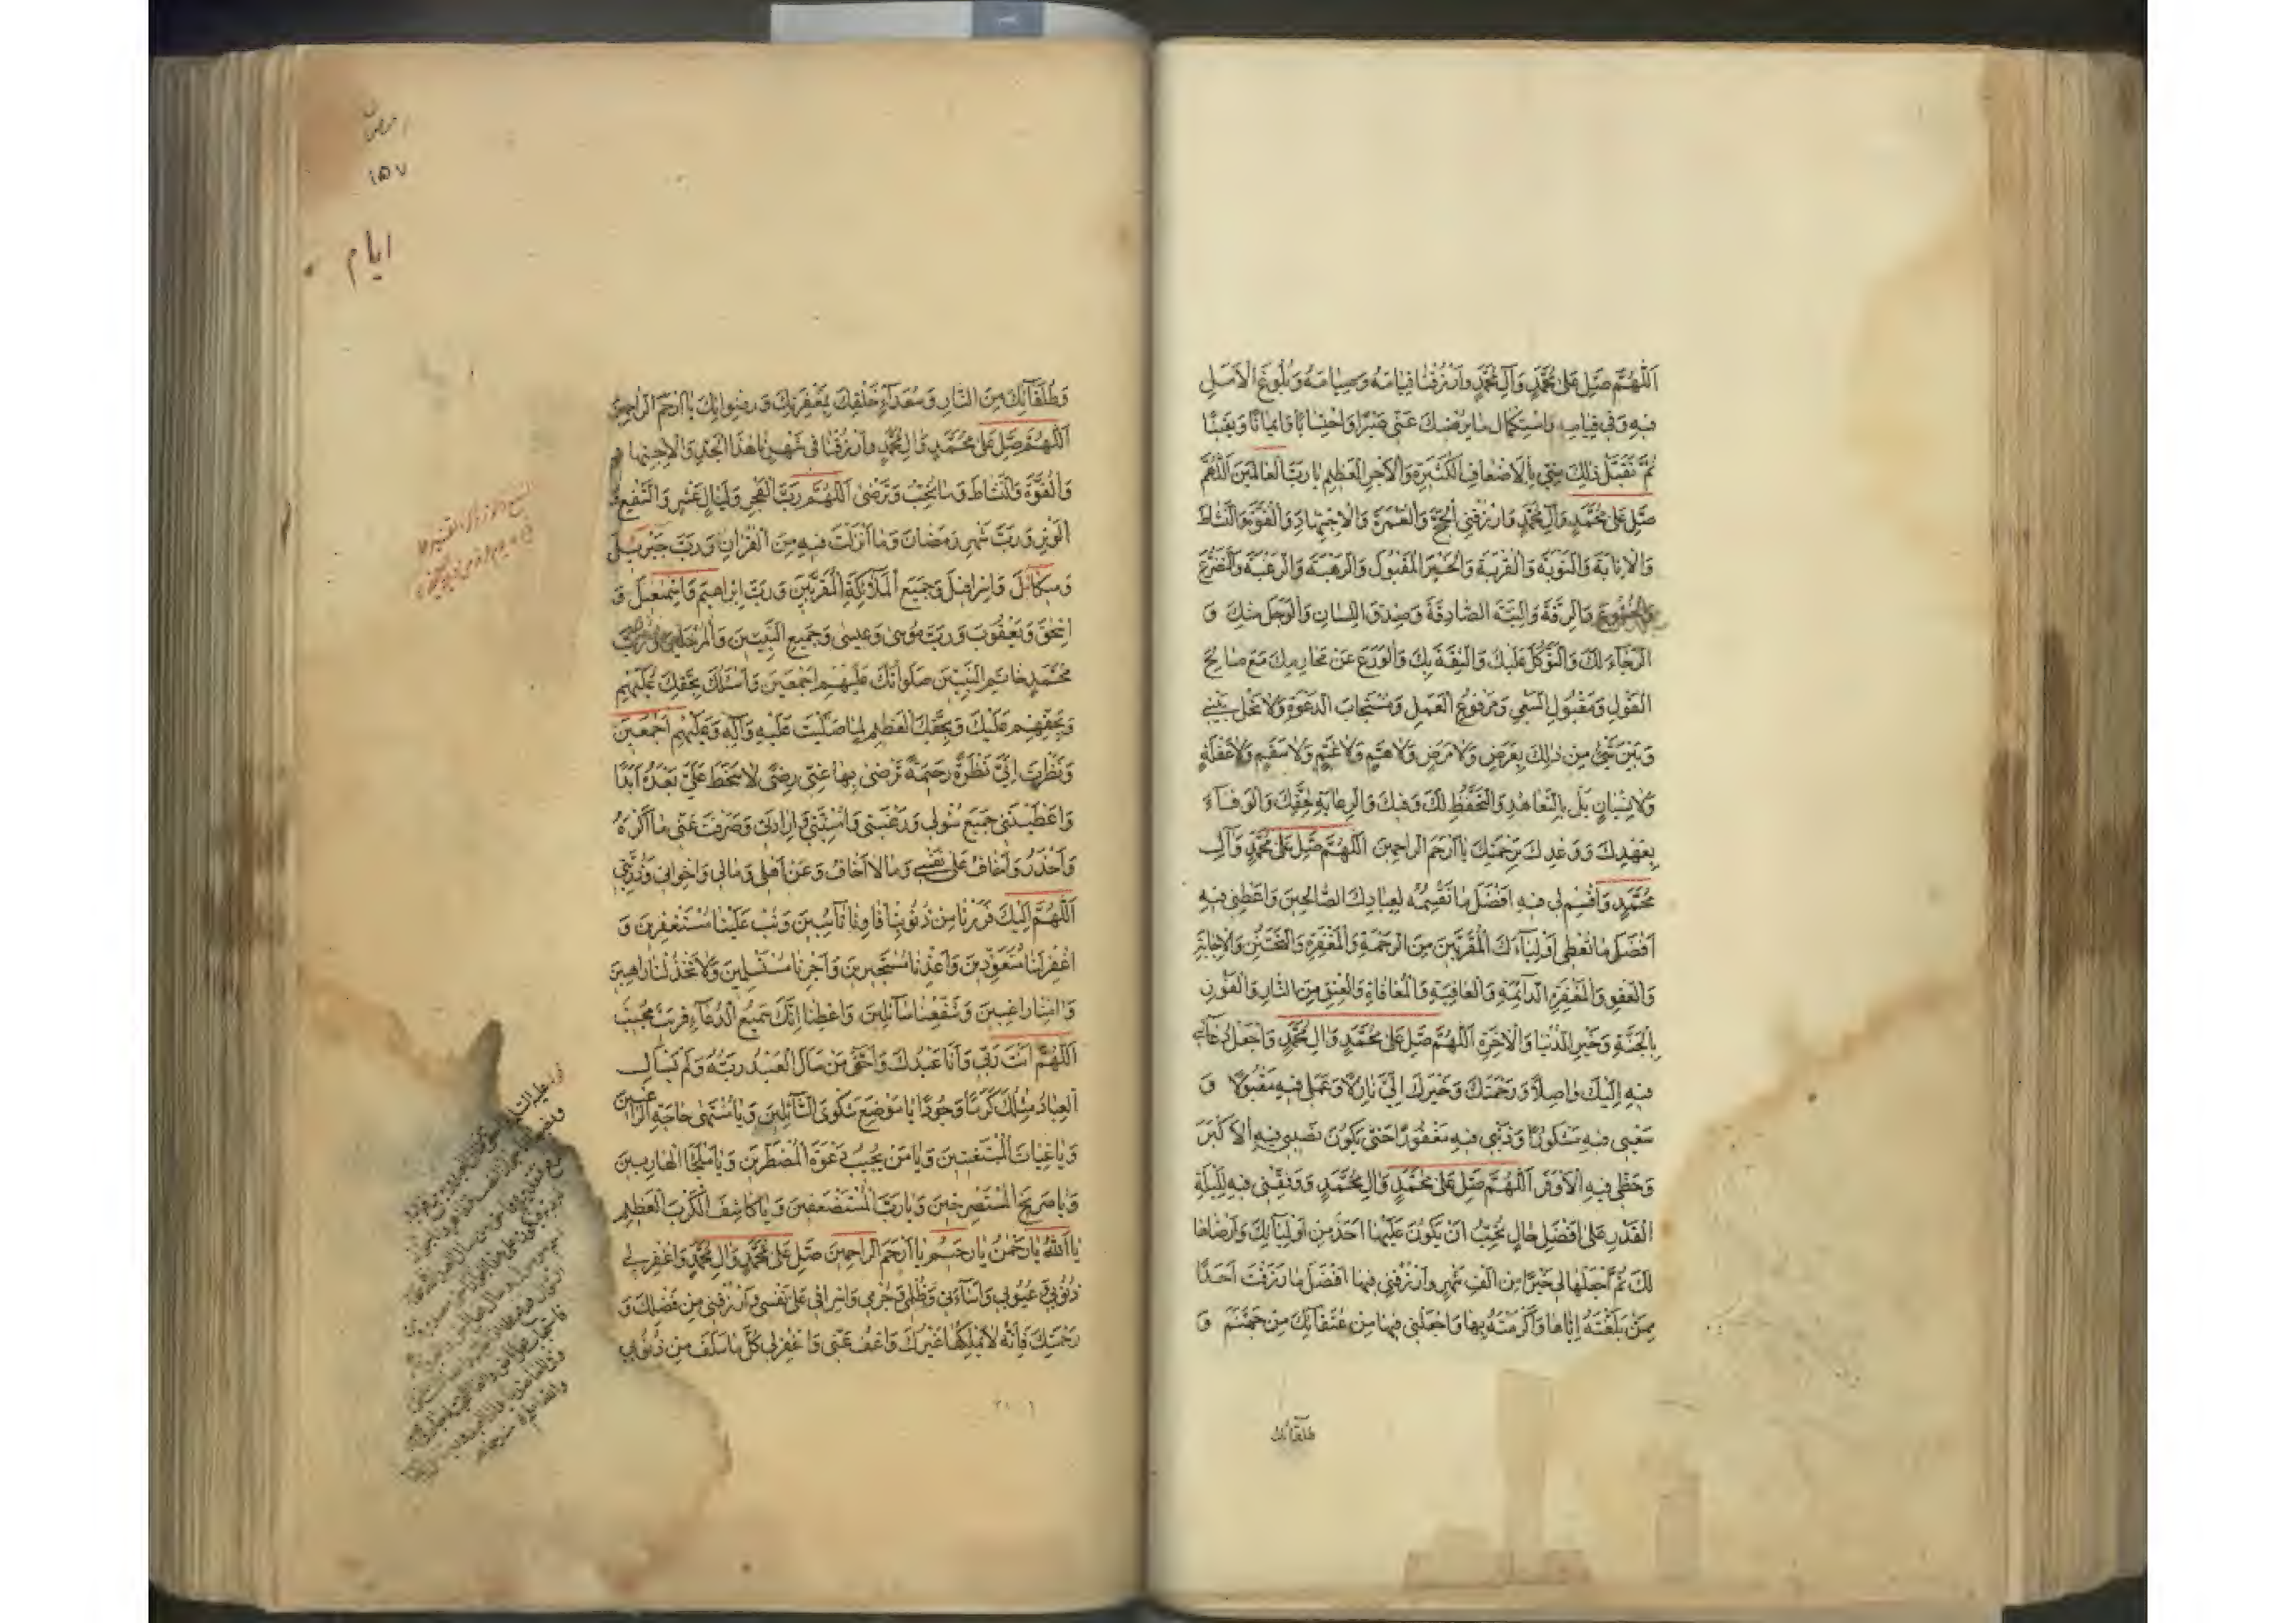 اَللّٰهُمَّ صَلِّ عَلىٰ مُحَمَّدٍ وَآلِ مُحَمَّدٍ وَارْزُقْنَا قِيَامَهُ وَصِيَامَهُ وَبُلُوغَ الْاَمَلِ
فِيهِ وَفِي قِيَامِهِ وَاسْتِكْمَالَ مَا يُرْضِيكَ عَنِّي صَبْرًا وَاحْتِسَابًا وَاِيمَانًا وَيَقِينًا
ثُمَّ تَقَبَّلْ ذٰلِكَ مِنِّي بِالْاَضْعَافِ الْكَثِيرَةِ وَالْاَجْرِ الْعَظِيمِ يَا رَبَّ الْعَالَمِينَ اَللّٰهُمَّ
صَلِّ عَلىٰ مُحَمَّدٍ وَآلِ مُحَمَّدٍ وَارْزُقْنِي الْحَجَّ وَالْعُمْرَةَ وَالْاِجْتِهَادَ وَالْقُوَّةَ وَالنَّشَاطَ
وَالْاِنَابَةَ وَالتَّوْبَةَ وَالْقُرْبَةَ وَالْخَيْرَ الْمَقْبُولَ وَالرَّهْبَةَ وَالرَّغْبَةَ وَالتَّضَرُّعَ
وَالْخُشُوعَ وَالرِّقَّةَ وَالنِّيَّةَ الصَّادِقَةَ وَصِدْقَ اللِّسَانِ وَالْوَجَلَ مِنْكَ وَ
الرَّجَاءَ لَكَ وَالتَّوَكُّلَ عَلَيْكَ وَالثِّقَةَ بِكَ وَالْوَرَعَ عَنْ مَحَارِمِكَ مَعَ صَالِحِ
الْقَوْلِ وَمَقْبُولِ السَّعْيِ وَمَرْفُوعِ الْعَمَلِ وَمُسْتَجَابِ الدَّعْوَةِ وَلَا تَحُلْ بَيْنِي
وَبَيْنَ شَيْءٍ مِنْ ذٰلِكَ بِعَرَضٍ وَلَا مَرَضٍ وَلَا هَمٍّ وَلَا غَمٍّ وَلَا سَقَمٍ وَلَا غَفْلَةٍ
وَلَا نِسْيَانٍ بَلْ بِالتَّعَاهُدِ وَالتَّحَفُّظِ لَكَ وَفِيكَ وَالرِّعَايَةِ لِحَقِّكَ وَالْوَفَاءِ
بِعَهْدِكَ وَوَعْدِكَ بِرَحْمَتِكَ يَا اَرْحَمَ الرَّاحِمِينَ اَللّٰهُمَّ صَلِّ عَلىٰ مُحَمَّدٍ وَآلِ
مُحَمَّدٍ وَاقْسِمْ لِي فِيهِ اَفْضَلَ مَا تَقْسِمُهُ لِعِبَادِكَ الصَّالِحِينَ وَاَعْطِنِي فِيهِ
اَفْضَلَ مَا تُعْطِي اَوْلِيَاءَكَ الْمُقَرَّبِينَ مِنَ الرَّحْمَةِ وَالْمَغْفِرَةِ وَالتَّحَنُّنِ وَالْاِجَابَةِ
وَالْعَفْوِ وَالْمَغْفِرَةِ الدَّائِمَةِ وَالْعَافِيَةِ وَالْمُعَافَاةِ وَالْعِتْقِ مِنَ النَّارِ وَالْفَوْزِ
بِالْجَنَّةِ وَخَيْرِ الدُّنْيَا وَالْاٰخِرَةِ اَللّٰهُمَّ صَلِّ عَلىٰ مُحَمَّدٍ وَآلِ مُحَمَّدٍ وَاجْعَلْ دُعَائِي
فِيهِ اِلَيْكَ وَاصِلًا وَرَحْمَتَكَ وَخَيْرَكَ اِلَيَّ نَازِلًا وَعَمَلِي فِيهِ مَقْبُولًا وَ
سَعْيِي فِيهِ مَشْكُورًا وَذَنْبِي فِيهِ مَغْفُورًا حَتّٰى يَكُونَ نَصِيبِي فِيهِ الْاَكْبَرَ
وَحَظِّي فِيهِ الْاَوْفَرَ اَللّٰهُمَّ صَلِّ عَلىٰ مُحَمَّدٍ وَآلِ مُحَمَّدٍ وَوَفِّقْنِي فِيهِ لِلَيْلَةِ
الْقَدْرِ عَلىٰ اَفْضَلِ حَالٍ تُحِبُّ اَنْ يَكُونَ عَلَيْهَا اَحَدٌ مِنْ اَوْلِيَائِكَ وَاَرْضَاهَا
لَكَ ثُمَّ اجْعَلْهَا لِي خَيْرًا مِنْ اَلْفِ شَهْرٍ وَارْزُقْنِي فِيهَا اَفْضَلَ مَا رَزَقْتَ اَحَدًا
مِمَّنْ بَلَّغْتَهُ اِيَّاهَا وَاَكْرَمْتَهُ بِهَا وَاجْعَلْنِي فِيهَا مِنْ عُتَقَائِكَ مِنْ جَهَنَّمَ وَ
طلقائك
رمضان
١٥٧
ايام
وَطُلَقَائِكَ مِنَ النَّارِ وَسُعَدَاءِ خَلْقِكَ بِمَغْفِرَتِكَ وَرِضْوَانِكَ يَا اَرْحَمَ الرَّاحِمِينَ
اَللّٰهُمَّ صَلِّ عَلىٰ مُحَمَّدٍ وَآلِ مُحَمَّدٍ وَارْزُقْنَا فِي شَهْرِنَا هٰذَا الْجِدَّ وَالْاِجْتِهَادَ
وَالْقُوَّةَ وَالنَّشَاطَ وَمَا تُحِبُّ وَتَرْضىٰ اَللّٰهُمَّ رَبَّ الْفَجْرِ وَلَيَالٍ عَشْرٍ وَالشَّفْعِ وَ
الْوَتْرِ وَرَبَّ شَهْرِ رَمَضَانَ وَمَا اَنْزَلْتَ فِيهِ مِنَ الْقُرْاٰنِ وَرَبَّ جَبْرَئِيلَ
وَمِيكَائِلَ وَاِسْرَافِيلَ وَجَمِيعِ الْمَلَائِكَةِ الْمُقَرَّبِينَ وَرَبَّ اِبْرَاهِيمَ وَاِسْمٰعِيلَ وَ
اِسْحٰقَ وَيَعْقُوبَ وَرَبَّ مُوسىٰ وَعِيسىٰ وَجَمِيعِ النَّبِيِّينَ وَالْمُرْسَلِينَ وَرَبَّ
مُحَمَّدٍ خَاتَمِ النَّبِيِّينَ صَلَوَاتُكَ عَلَيْهِمْ اَجْمَعِينَ وَاَسْئَلُكَ بِحَقِّكَ عَلَيْهِمْ
وَبِحَقِّهِمْ عَلَيْكَ وَبِحَقِّكَ الْعَظِيمِ لَمَّا صَلَّيْتَ عَلَيْهِ وَآلِهِ وَعَلَيْهِمْ اَجْمَعِينَ
وَنَظَرْتَ اِلَيَّ نَظْرَةً رَحِيمَةً تَرْضىٰ بِهَا عَنِّي رِضًى لَا سَخَطَ عَلَيَّ بَعْدَهُ اَبَدًا
وَاَعْطَيْتَنِي جَمِيعَ سُؤْلِي وَرَغْبَتِي وَاُمْنِيَّتِي وَاِرَادَتِي وَصَرَفْتَ عَنِّي مَا اَكْرَهُ
وَاَحْذَرُ وَاَخَافُ عَلىٰ نَفْسِي وَمَا لَا اَخَافُ وَعَنْ اَهْلِي وَمَالِي وَاِخْوَانِي وَذُرِّيَّتِي
اَللّٰهُمَّ اِلَيْكَ فَرَرْنَا مِنْ ذُنُوبِنَا فَاٰوِنَا تَائِبِينَ وَتُبْ عَلَيْنَا مُسْتَغْفِرِينَ وَ
اغْفِرْ لَنَا مُتَعَوِّذِينَ وَاَعِذْنَا مُسْتَجِيرِينَ وَاَجِرْنَا مُسْتَسْلِمِينَ وَلَا تَخْذُلْنَا رَاهِبِينَ
وَاٰمِنَّا رَاغِبِينَ وَشَفِّعْنَا سَائِلِينَ وَاَعْطِنَا اِنَّكَ سَمِيعُ الدُّعَاءِ قَرِيبٌ مُجِيبٌ
اَللّٰهُمَّ اَنْتَ رَبِّي وَاَنَا عَبْدُكَ وَاَحَقُّ مَنْ سَاَلَ الْعَبْدُ رَبُّهُ وَلَمْ يَسْاَلِ
الْعِبَادُ مِثْلَكَ كَرَمًا وَجُودًا يَا مَوْضِعَ شَكْوَى السَّائِلِينَ وَيَا مُنْتَهىٰ حَاجَةِ الرَّاغِبِينَ
وَيَا غِيَاثَ الْمُسْتَغِيثِينَ وَيَا مَنْ يُجِيبُ دَعْوَةَ الْمُضْطَرِّينَ وَيَا مَلْجَأَ الْهَارِبِينَ
وَيَا صَرِيخَ الْمُسْتَصْرِخِينَ وَيَا رَبَّ الْمُسْتَضْعَفِينَ وَيَا كَاشِفَ الْكَرْبِ الْعَظِيمِ
يَا اَللّٰهُ يَا رَحْمٰنُ يَا رَحِيمُ يَا اَرْحَمَ الرَّاحِمِينَ صَلِّ عَلىٰ مُحَمَّدٍ وَآلِ مُحَمَّدٍ وَاغْفِرْ لِي
ذُنُوبِي وَعُيُوبِي وَاِسَاءَتِي وَظُلْمِي وَجُرْمِي وَاِسْرَافِي عَلىٰ نَفْسِي وَارْزُقْنِي مِنْ فَضْلِكَ وَ
رَحْمَتِكَ فَاِنَّهُ لَا يَمْلِكُهَا غَيْرُكَ وَاعْفُ عَنِّي وَاغْفِرْ لِي كُلَّ مَا سَلَفَ مِنْ ذُنُوبِي